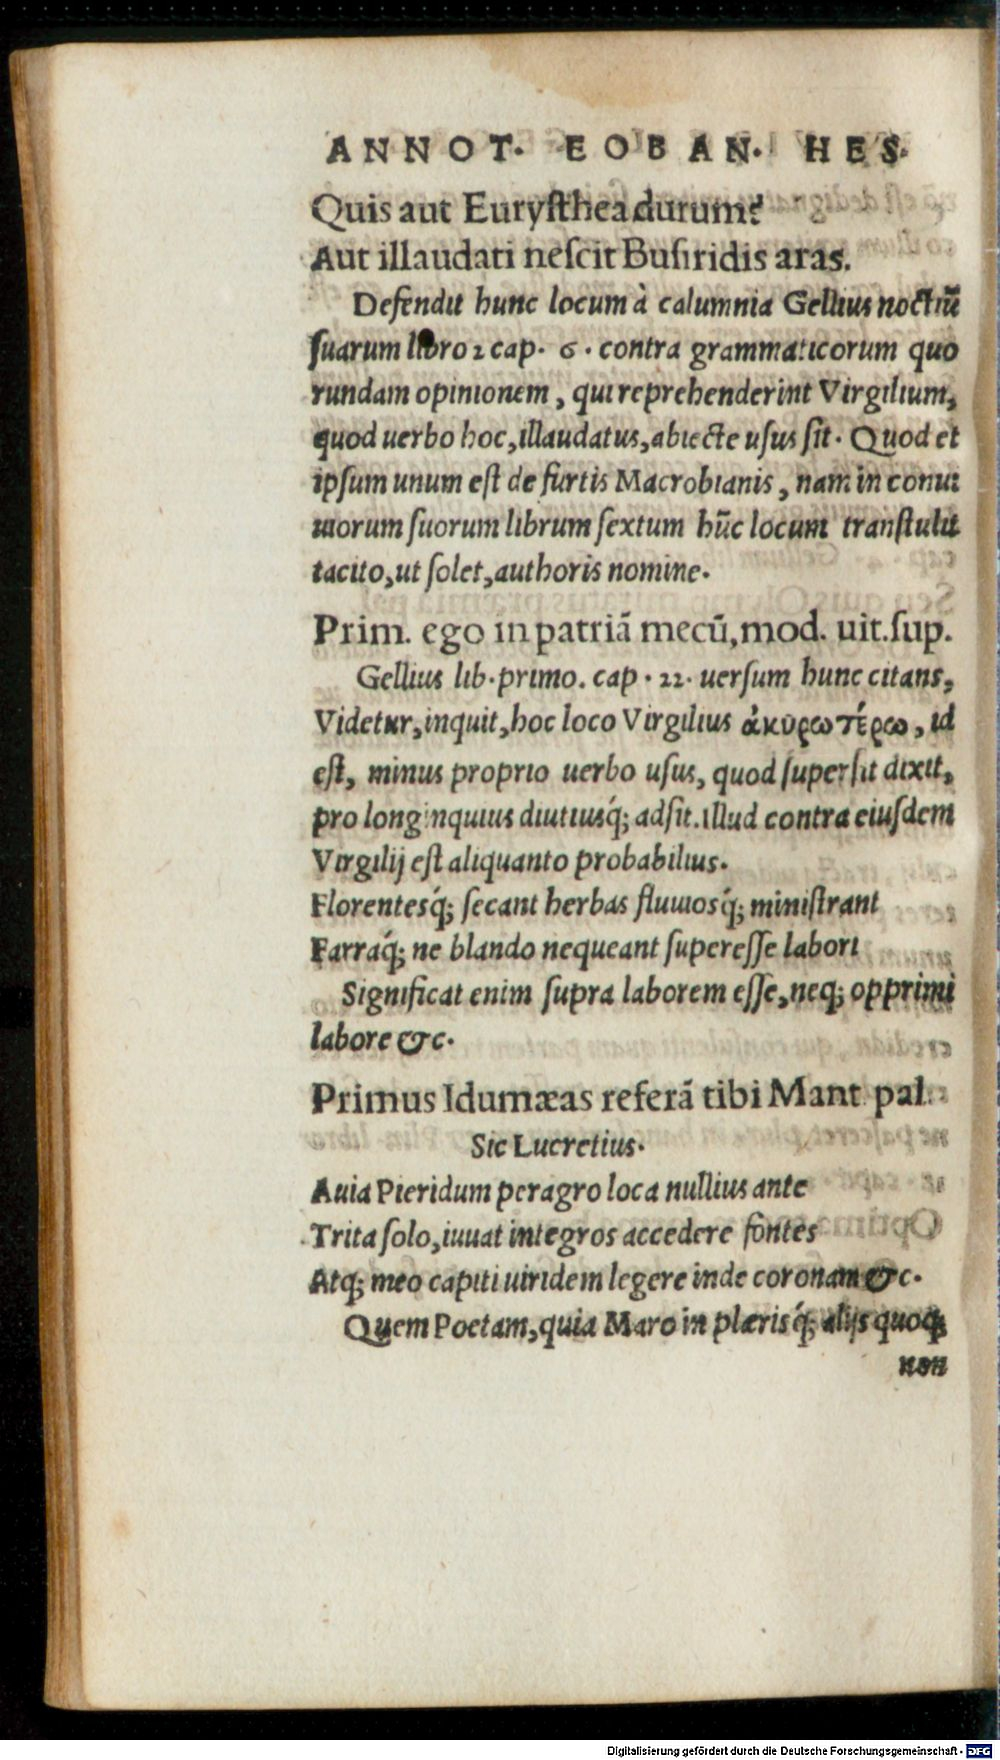 ANNOT. EOBAN. HES.
Quis aut Eurysthea durum?
Aut illaudati nescit Busiridis aras.
Defendit hunc locum à calumnia Gellius noctiũ
suarum libro 2 cap. 6. contra grammaticorum quo
rundam opinionem, qui reprehenderint Virgilium,
quod uerbo hoc, illaudatus, abiecte usus sit. Quod et
ipsum unum est de furtis Macrobianis, nam in conui
uiorum suorum librum sextum hũc locum transtulit
tacito, ut solet, authoris nomine.
Prim. ego in patriã mecũ, mod. uit. sup.
Gellius lib. primo. cap. 22. uersum hunc citans,
Videtur, inquit, hoc loco Virgilius ἀκυρωτέρω, id
est, minus proprio uerbo usus, quod supersit dixit,
pro longinquius diutiusq́; adsit. illud contra eiusdem
Virgilij est aliquanto probabilius.
Florentesq́; secant herbas fluuiosq́; ministrant
Farraq́; ne blando nequeant superesse labori
Significat enim supra laborem esse, neq; opprimi
labore &c.
Primus Idumæas referã tibi Mant. pal.
Sic Lucretius.
Auia Pieridum peragro loca nullius ante
Trita solo, iuuat integros accedere fontes
Atq; meo capiti uiridem legere inde coronam &c.
Quem Poetam, quia Maro in plærisq́; alijs quoq;
non
Digitalisierung gefördert durch die Deutsche Forschungsgemeinschaft - DFG